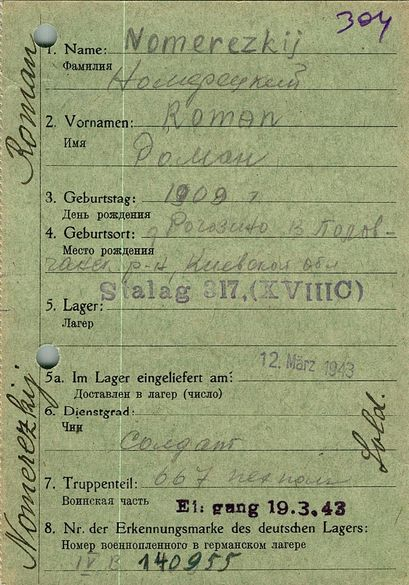 304
1. Name: Nomerezkij
Фамилия
Номерецкий
2. Vornamen: Roman
Имя
Роман
3. Geburtstag: 1909 г
День рождения
4. Geburtsort: Рогозино В Полов-
Место рождения
р-н, Киевской обл
Stalag 317,(XVIIIC)
5. Lager:
Лагерь
12. März 1943
5a. Im Lager eingeliefert am:
Доставлен в лагерь (число)
6. Dienstgrad:
Чин
солдат
7. Truppenteil: 667
Воинская часть
Ei: gang 19.3.43
8. Nr. der Erkennungsmarke des deutschen Lagers:
Номер военнопленного в германском лагере
IV B 140955
Roman
Nomerezkij
Sold.